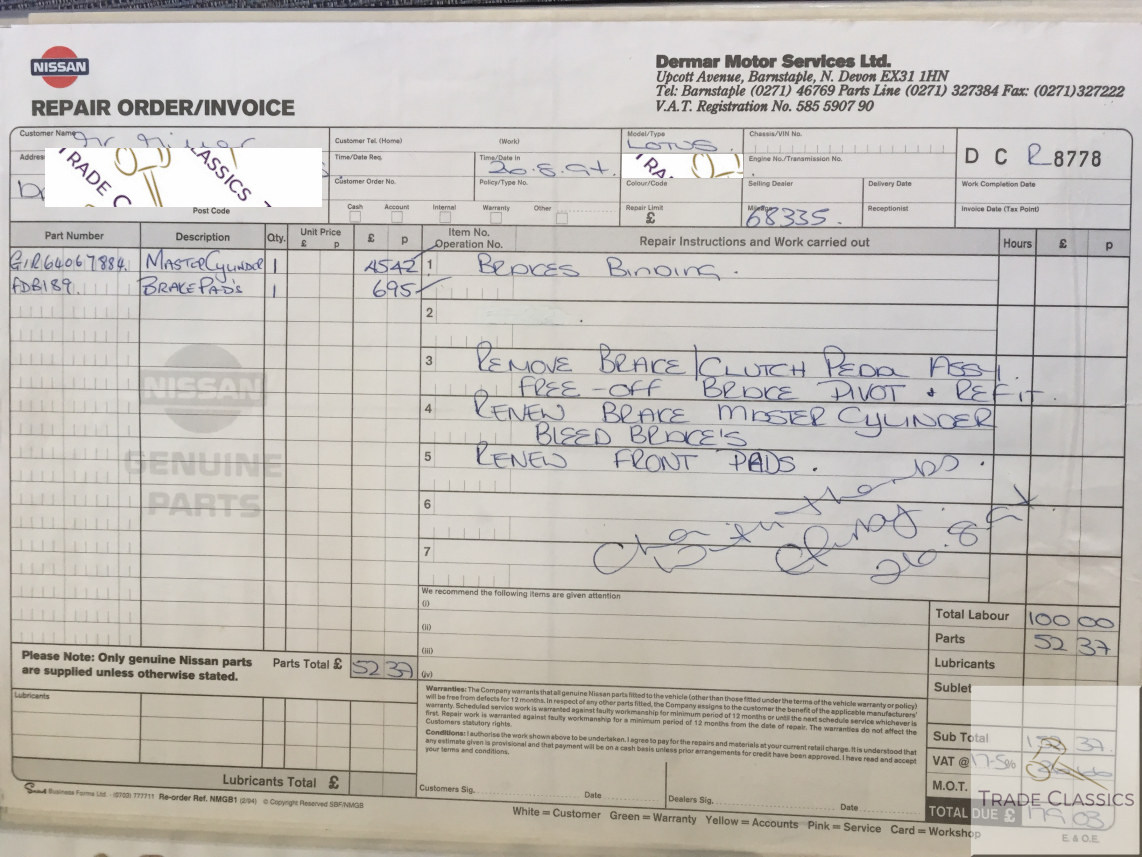 NISSAN
REPAIR ORDER/INVOICE
Dermar Motor Services Ltd.
Upcott Avenue, Barnstaple, N. Devon EX31 1HN
Tel: Barnstaple (0271) 46769 Parts Line (0271) 327384 Fax: (0271)327222
V.A.T. Registration No. 585 5907 90
Customer Name
Customer Tel. (Home) (Work)
Model/Type LOTUS.
Chassis/VIN No.
D C R 8778
Address
TRADE CLASSICS
Time/Date Req.
Time/Date In 26.8.94.
TRA
Engine No./Transmission No.
Customer Order No.
Policy/Type No.
Colour/Code
Selling Dealer
Delivery Date
Work Completion Date
Post Code
Cash Account Internal Warranty Other
Repair Limit £
Mileage 68335.
Receptionist
Invoice Date (Tax Point)
Part Number Description Qty. Unit Price £ p £ p
Item No. Operation No. Repair Instructions and Work carried out Hours £ p
GIR64067884. MASTER CYLINDER 1 4542
1 BRAKES BINDING.
FDB189. BRAKE PAD'S 1 695
2
3 REMOVE BRAKE/CLUTCH PEDAL ASSY.
FREE-OFF BRAKE PIVOT & REFIT.
4 RENEW BRAKE MASTER CYLINDER
BLEED BRAKE'S
5 RENEW FRONT PADS.
NISSAN
GENUINE
PARTS
6
26.8
7
We recommend the following items are given attention
(i)
(ii)
(iii)
(iv)
Total Labour 100 00
Parts 52 37
Lubricants
Sublet
Please Note: Only genuine Nissan parts
are supplied unless otherwise stated.
Parts Total £ 52 37
Lubricants
Lubricants Total £
Warranties: The Company warrants that all genuine Nissan parts fitted to the vehicle (other than those fitted under the terms of the vehicle warranty or policy)
will be free from defects for 12 months. In respect of any other parts fitted, the Company assigns to the customer the benefit of the applicable manufacturers'
warranty. Scheduled service work is warranted against faulty workmanship for minimum period of 12 months or until the next schedule service whichever is
first. Repair work is warranted against faulty workmanship for a minimum period of 12 months from the date of repair. The warranties do not affect the
Customers statutory rights.
Conditions: I authorise the work shown above to be undertaken. I agree to pay for the repairs and materials at your current retail charge. It is understood that
any estimate given is provisional and that payment will be on a cash basis unless prior arrangements for credit have been approved. I have read and accept
your terms and conditions.
Customers Sig. Date
Dealers Sig. Date
Sub Total 152 37.
VAT @ 17.5%
M.O.T.
TRADE CLASSICS
TOTAL DUE £ 179 03
E & O.E
Business Forms Ltd. - (0703) 777711 Re-order Ref. NMGB1 (2/94) © Copyright Reserved SBF/NMGB
White = Customer Green = Warranty Yellow = Accounts Pink = Service Card = Workshop